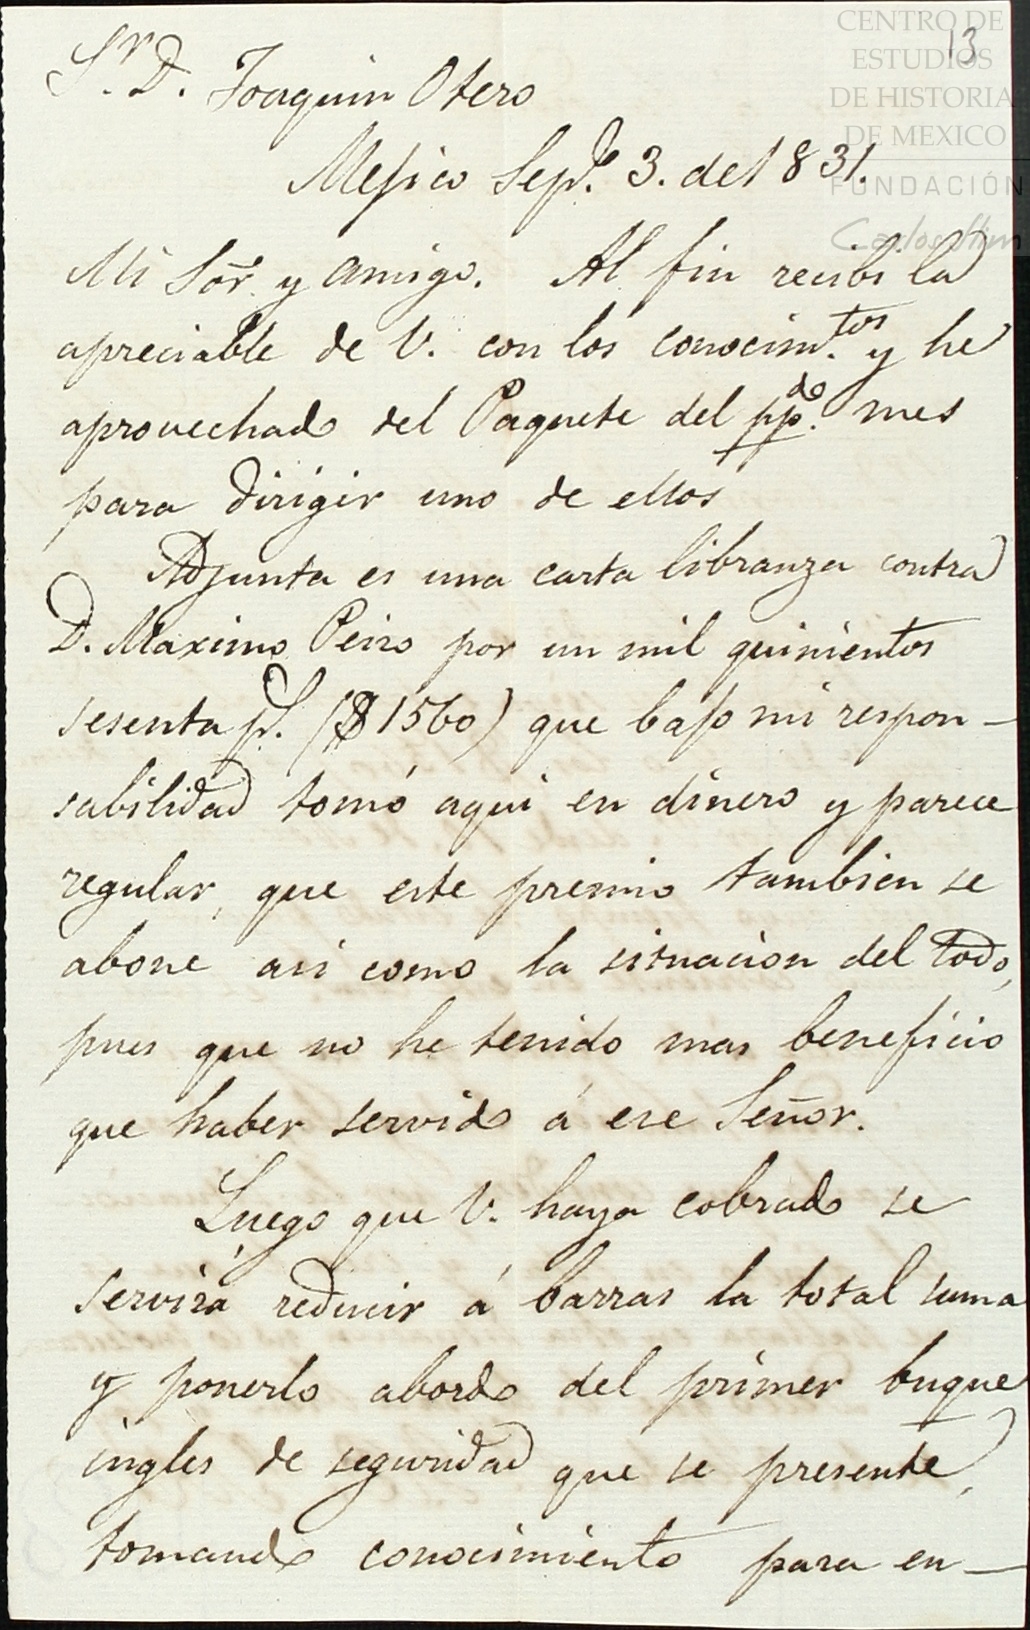 CENTRO DE
ESTUDIOS
DE HISTORIA
DE MEXICO
FUNDACIÓN
Carlos Slim
13
Sr. D. Joaquin Otero
Mejico Sepe. 3. de 1831.
Mi Sor. y amigo. Al fin recibi la
apreciable de V. con los conocim.tos y he
aprovechado del Paquete del pp.do mes
para dirigir uno de ellos
Adjunta es una carta libranza contra
D. Maximo Peiro por un mil quinientos
sesenta p.s ($1560) que bajo mi respon-
sabilidad tomó aqui en dinero y parece
regular, que este premio tambien se
abone asi como la situacion del todo,
pues que no he tenido mas beneficio
que haber servido á ese Señor.
Luego que V. haya cobrado se
servirá reducir á barras la total suma
y ponerlo abordo del primer buque
ingles de seguridad que se presente,
tomando conocimiento para en-